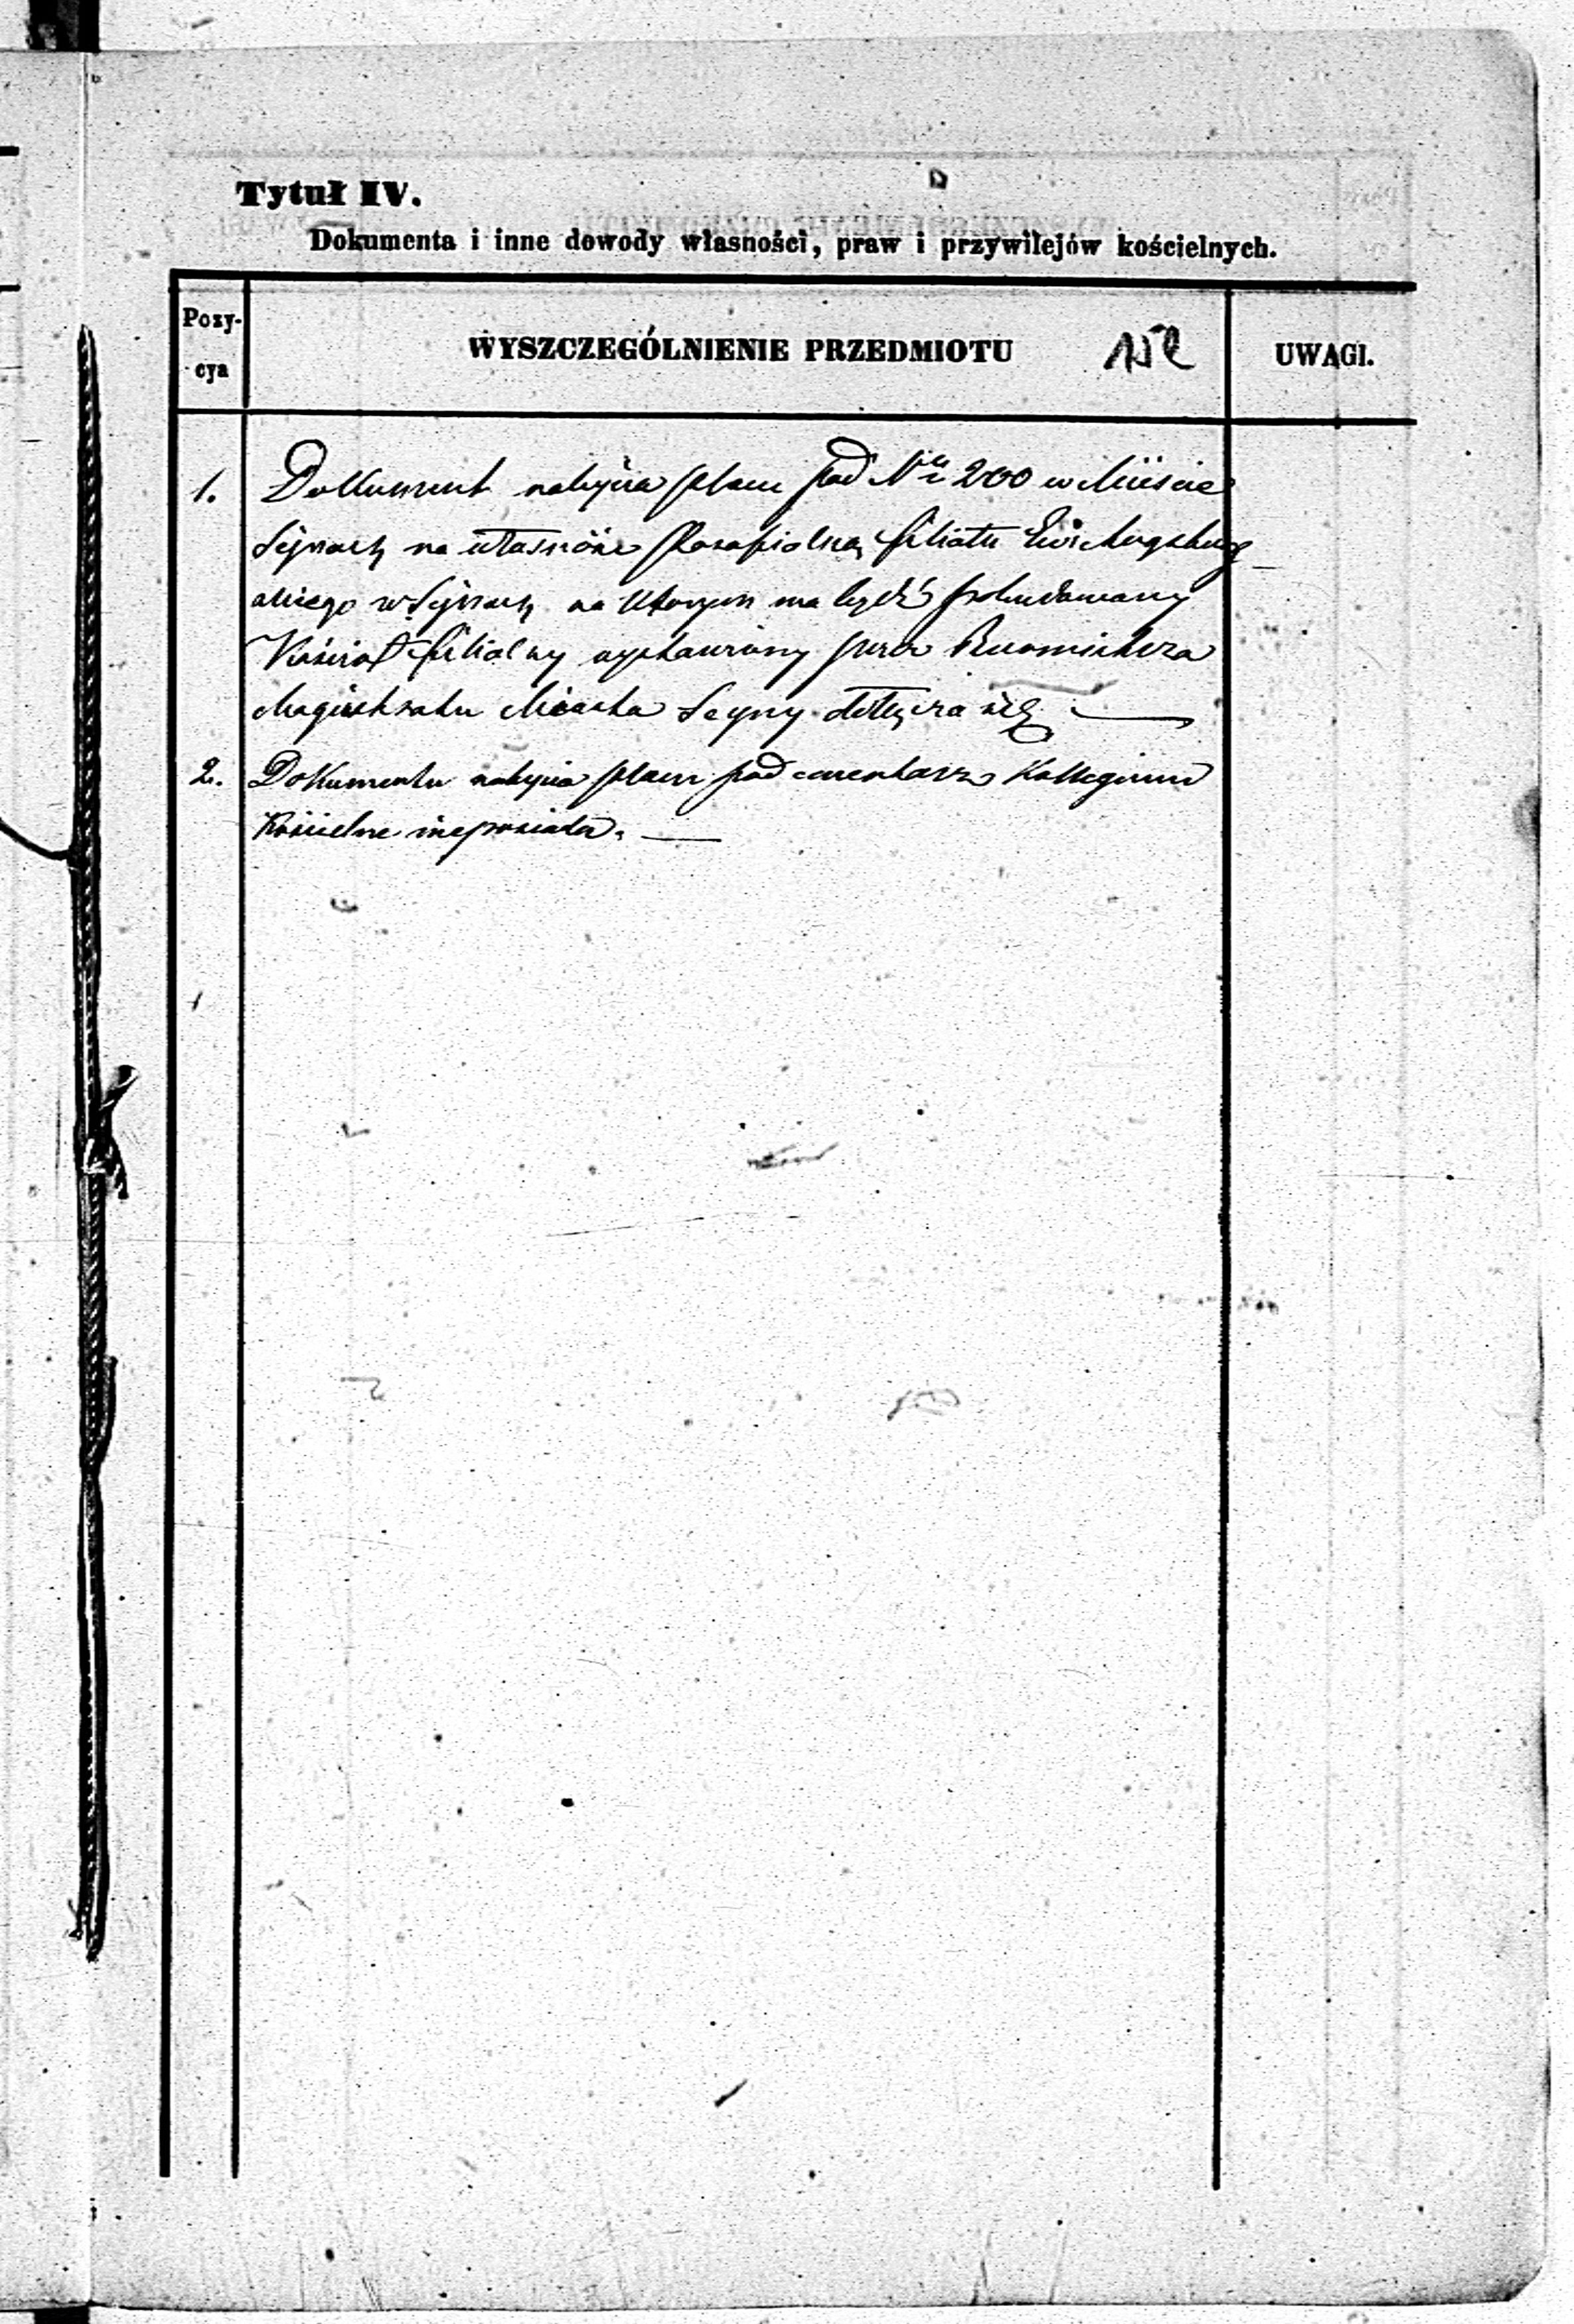 Tytuł IV.
Dokumenta i inne dowody własności, praw i przywilejów kościelnych.
Pozy-
cya
WYSZCZEGÓLNIENIE PRZEDMIOTU
UWAGI.
1. Dokument nabycia placu pod Nrm 200 w Mieście
Sejnach na własność Parafialną filiału Ewi Augsburg
skiego w Sejnach na którym ma bydź pobudowany
Kościoł filialny wystawiony przez Burmistrza
Magistratu Miasta Seyny dołącza się
2. Dokumentu nabycia placu pod cmentarz Kollegium
Kościelne nieposiada.